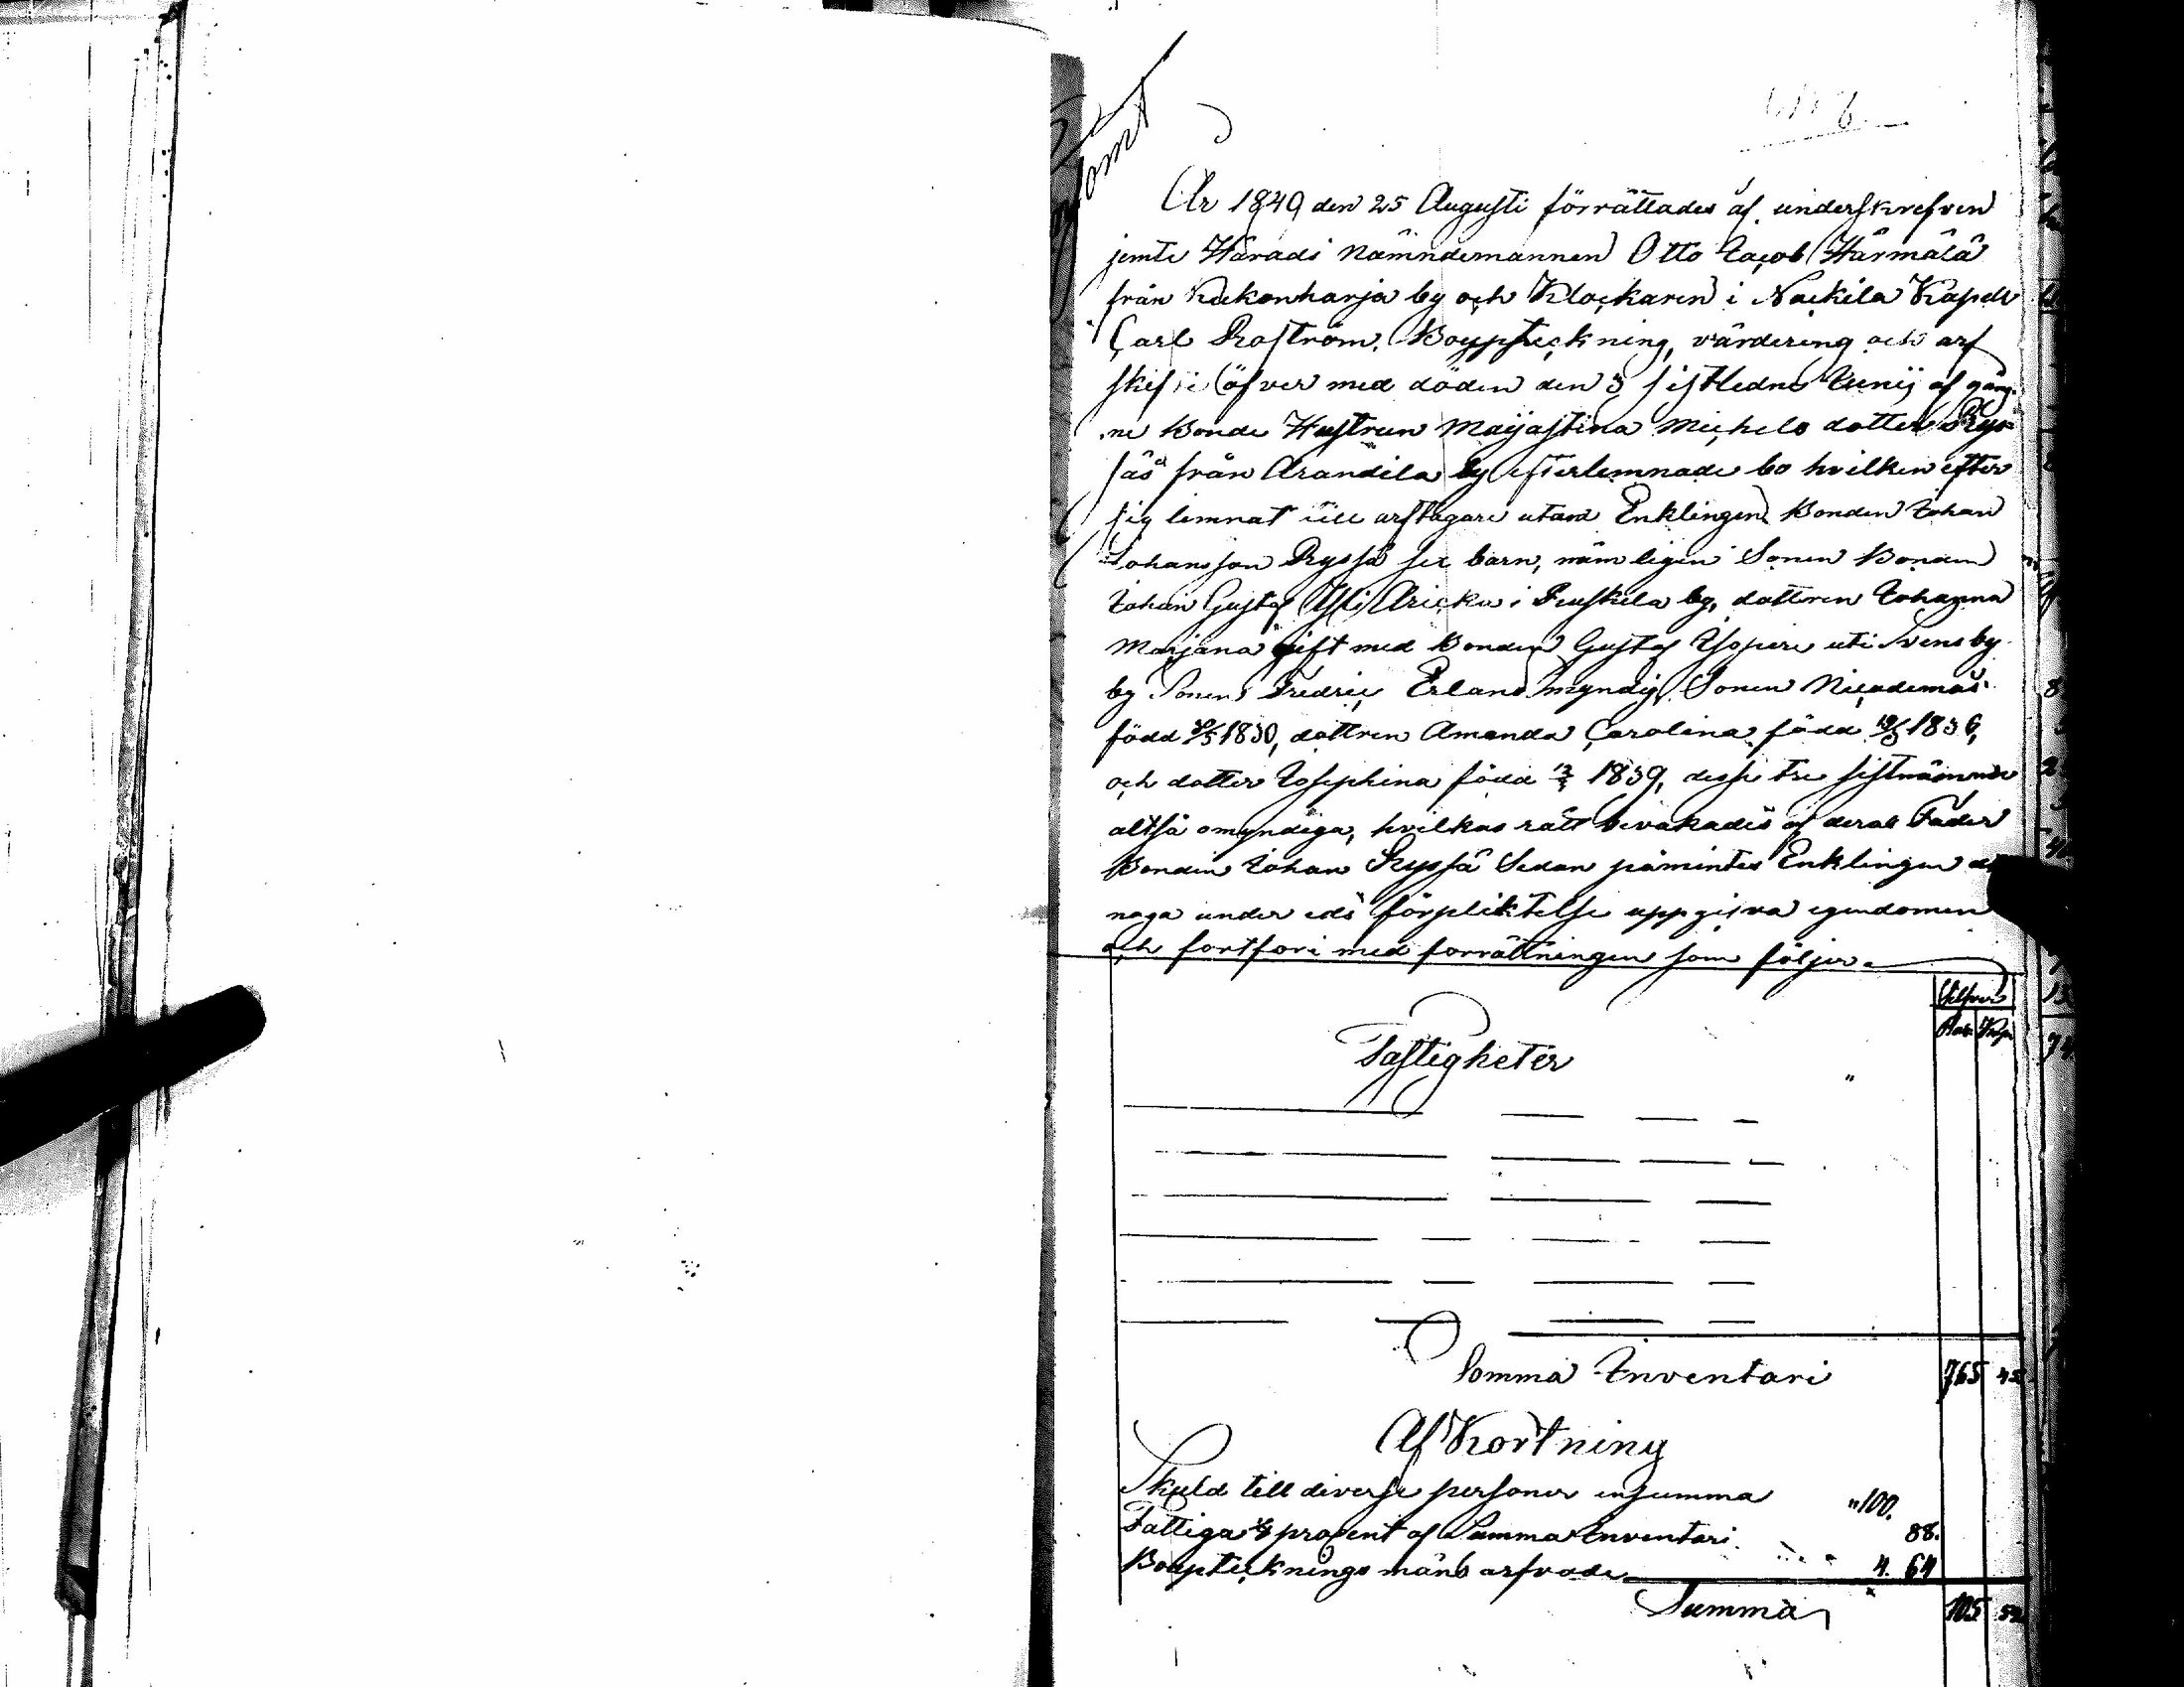 År 1849 den 25 Augusti förrättades af underskrefven
jemte Härads Nämndemannen Otto Jacob Härmälä
från Kukonharja by och Klockaren i Nackila Kapell
Carl Roström, Bouppteckning, värdering och arf
skifte öfver med döden den 3 sistledne Junij afgång
ne Bonde Hustrun Maijastina Michels dotter Rys
sä från Arandila by efterlemnade bo hvilken efter
sig lemnat till arftagare utom Enklingen Bonden Johan
Johansson Ryssä sex barn, nämligen Sonen Bonden
Johan Gustaf i by, dottren Johanna
Marjana gift med Bonden Gustaf uti Svensby
by Sonen Fredric Erland myndig, Sonen Nicodemus
född 1830, dottren Amanda Carolina född 19/5 1836,
och dotter Josephina född 1839, desse tre sistnämnde
altså omyndiga, hvilkas rätt bevakades af deras Fader
Bonden Johan Ryssä Sedan påmintes Enklingen at
noga under eds förpliktelse uppgifva egendomen
och fortfors med förrättningen som följer.
Silfver
Rub. Kop.
Fastigheter
Somma Inventari 765 45
AfKortning
Skuld till diverse personer ensumma "100.
Fattiga procent af Summa Inventari 88.
Bouptecknings mäns arfvode 4. 64
Summa 105 52